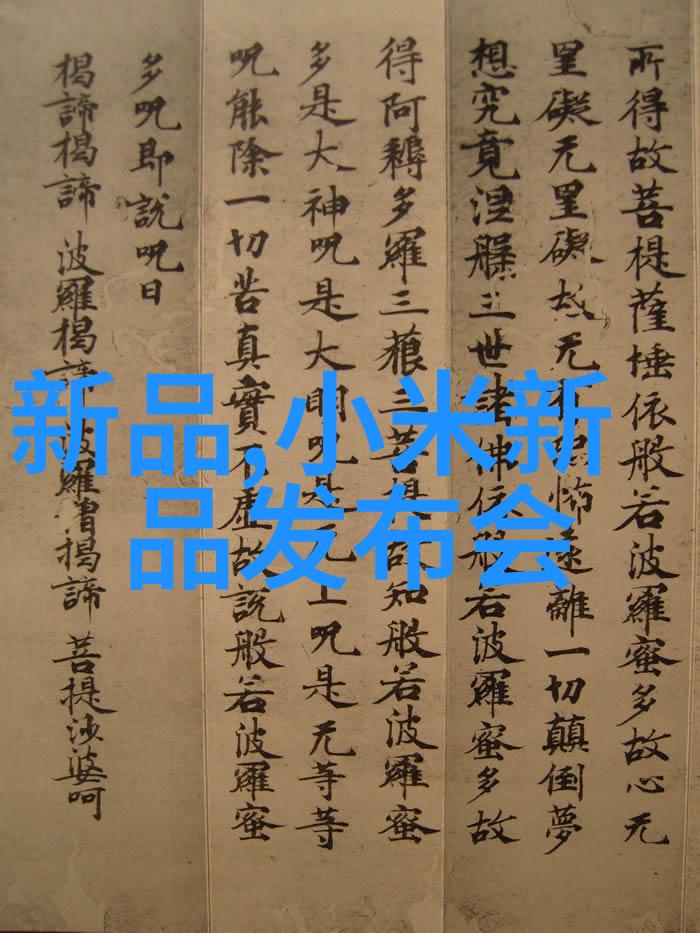 所得故菩提薩埵依般若波羅蜜多故心无
罣礙无罣礙故无有恐怖遠離一切顛倒夢
想究竟涅槃三世諸佛依般若波羅蜜多故
得阿耨多羅三藐三菩提故知般若波羅蜜
多是大神呪是大明呪是无上呪是无等等
呪能除一切苦真實不虛故說般若波羅蜜
多呪即說呪曰
揭諦揭諦 波羅揭諦 波羅僧揭諦 菩提沙婆呵
新品,小米新
品发布会